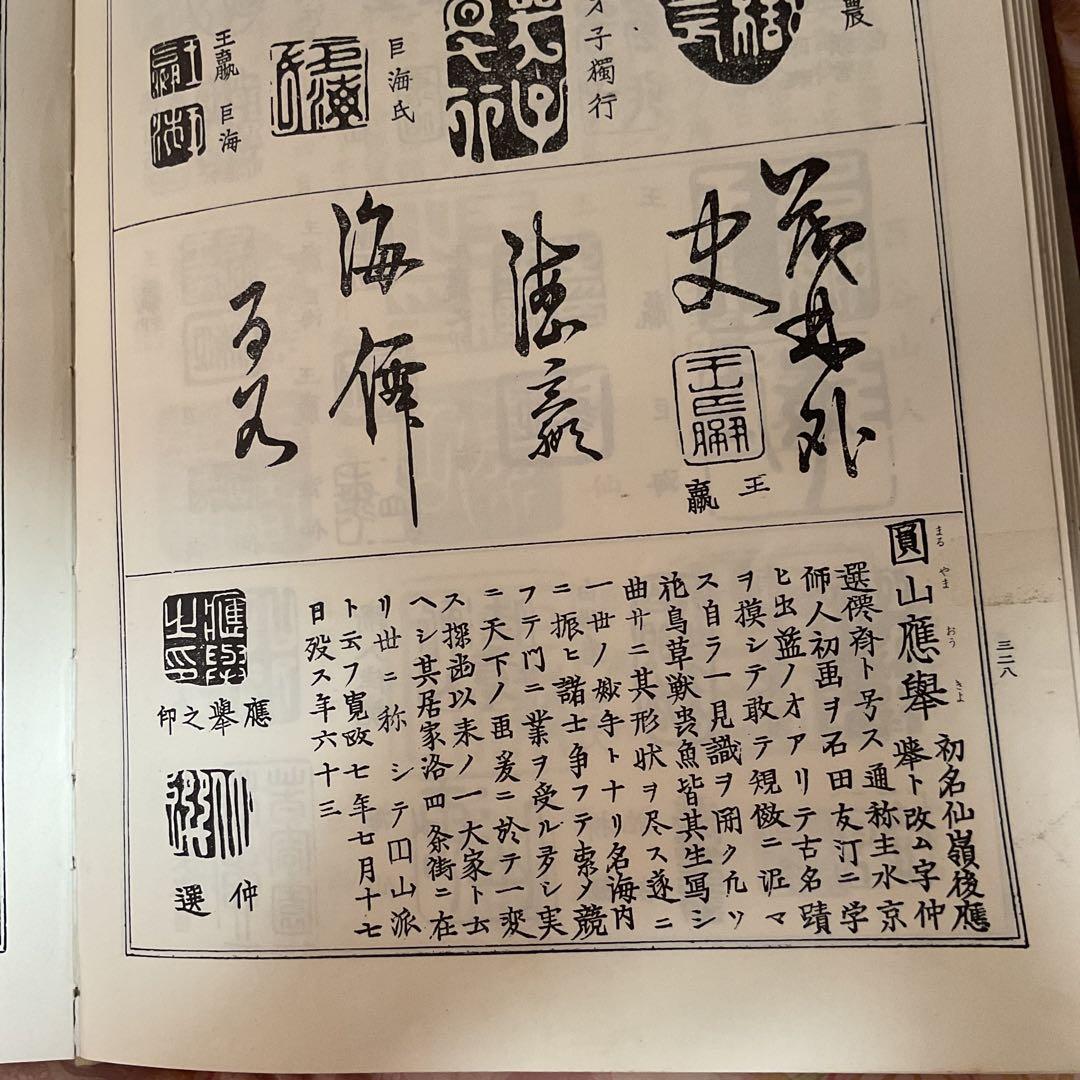 農
才子獨行
巨海氏
王贏
巨海
茂林外
史
王贏
王贏
海
圓山應舉
まる やま おう きよ
初名仙嶺後應
舉ト改ム字仲
選僊齋ト号ス通称主水京
師人初画ヲ石田友汀ニ学
ヒ出藍ノオアリテ古名蹟
ヲ摸シテ敢テ規倣ニ泥マ
ス自ラ一見識ヲ開ク凢ソ
花鳥草獣喪魚皆其生冩シ
曲サニ其形状ヲ尽ス遂ニ
一世ノ妙手トナリ名海内
ニ振ヒ諸士争フテ索メ競
フテ門ニ業ヲ受ル夛シ実
ニ天下ノ画爰ニ於テ一変
ス探幽以来ノ一大家ト云
ヘシ其居家洛四条街ニ在
リ世ニ称シテ円山派
ト云フ寛政七年七月十七
日歿ス年六十三
應舉之印
應舉之印
仲選
仲選
三二八